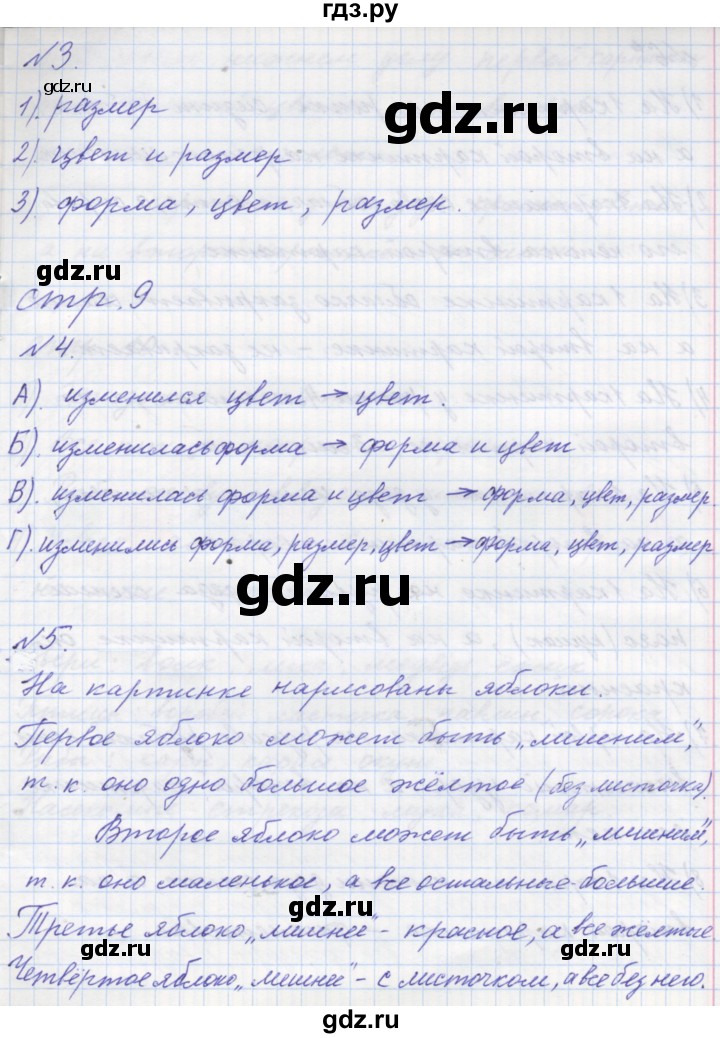 гдз.ру
№3.
1). размер
gdz.ru
2). цвет и размер
3) форма, цвет, размер.
gdz.ru
стр. 9
№4.
А). изменился цвет → цвет.
Б). изменилась форма → форма и цвет
В). изменилась форма и цвет → форма, цвет, размер.
Г). изменились форма, размер, цвет → форма, цвет, размер
gdz.ru
№5.
На картинке нарисованы яблоки.
Первое яблоко может быть „лишним",
т.к. оно одно большое жёлтое (без листочка).
Второе яблоко может быть „лишним",
т.к. оно маленькое, а все остальные большие.
Третье яблоко „лишнее" - красное, а все жёлтые
Четвёртое яблоко „лишнее" - с листочком, а все без него.
gdz.ru